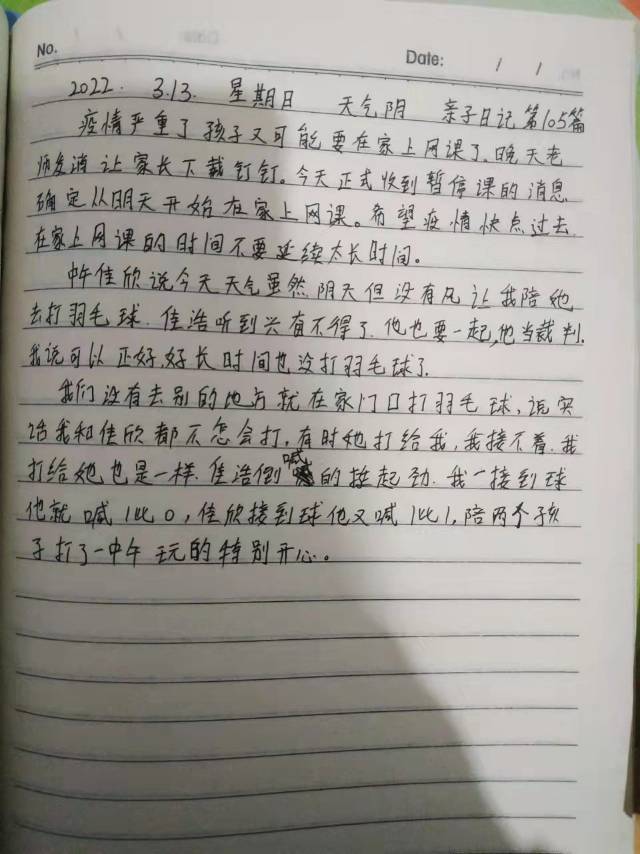 No.
Date: / /
2022. 3.13. 星期日 天气阴 亲子日记第105篇
疫情严重了孩子又可能要在家上网课了.晚天老
师发消让家长下载钉钉。今天正式收到暂停课的消息
确定从明天开始在家上网课。希望疫情快点过去.
在家上网课的时间不要延续太长时间。
中午佳欣说今天天气虽然阴天但没有风让我陪她
去打羽毛球.佳浩听到兴奋不得了.他也要一起,他当裁判.
我说可以正好,好长时间也没打羽毛球了.
我们没有去别的地方就在家门口打羽毛球,说实
话我和佳欣都不怎会打,有时她打给我,我接不着.我
打给她也是一样.佳浩倒喊的挺起劲.我一接到球
他就喊1比0,佳欣接到球他又喊1比1,陪两个孩
子打了一中午玩的特别开心。